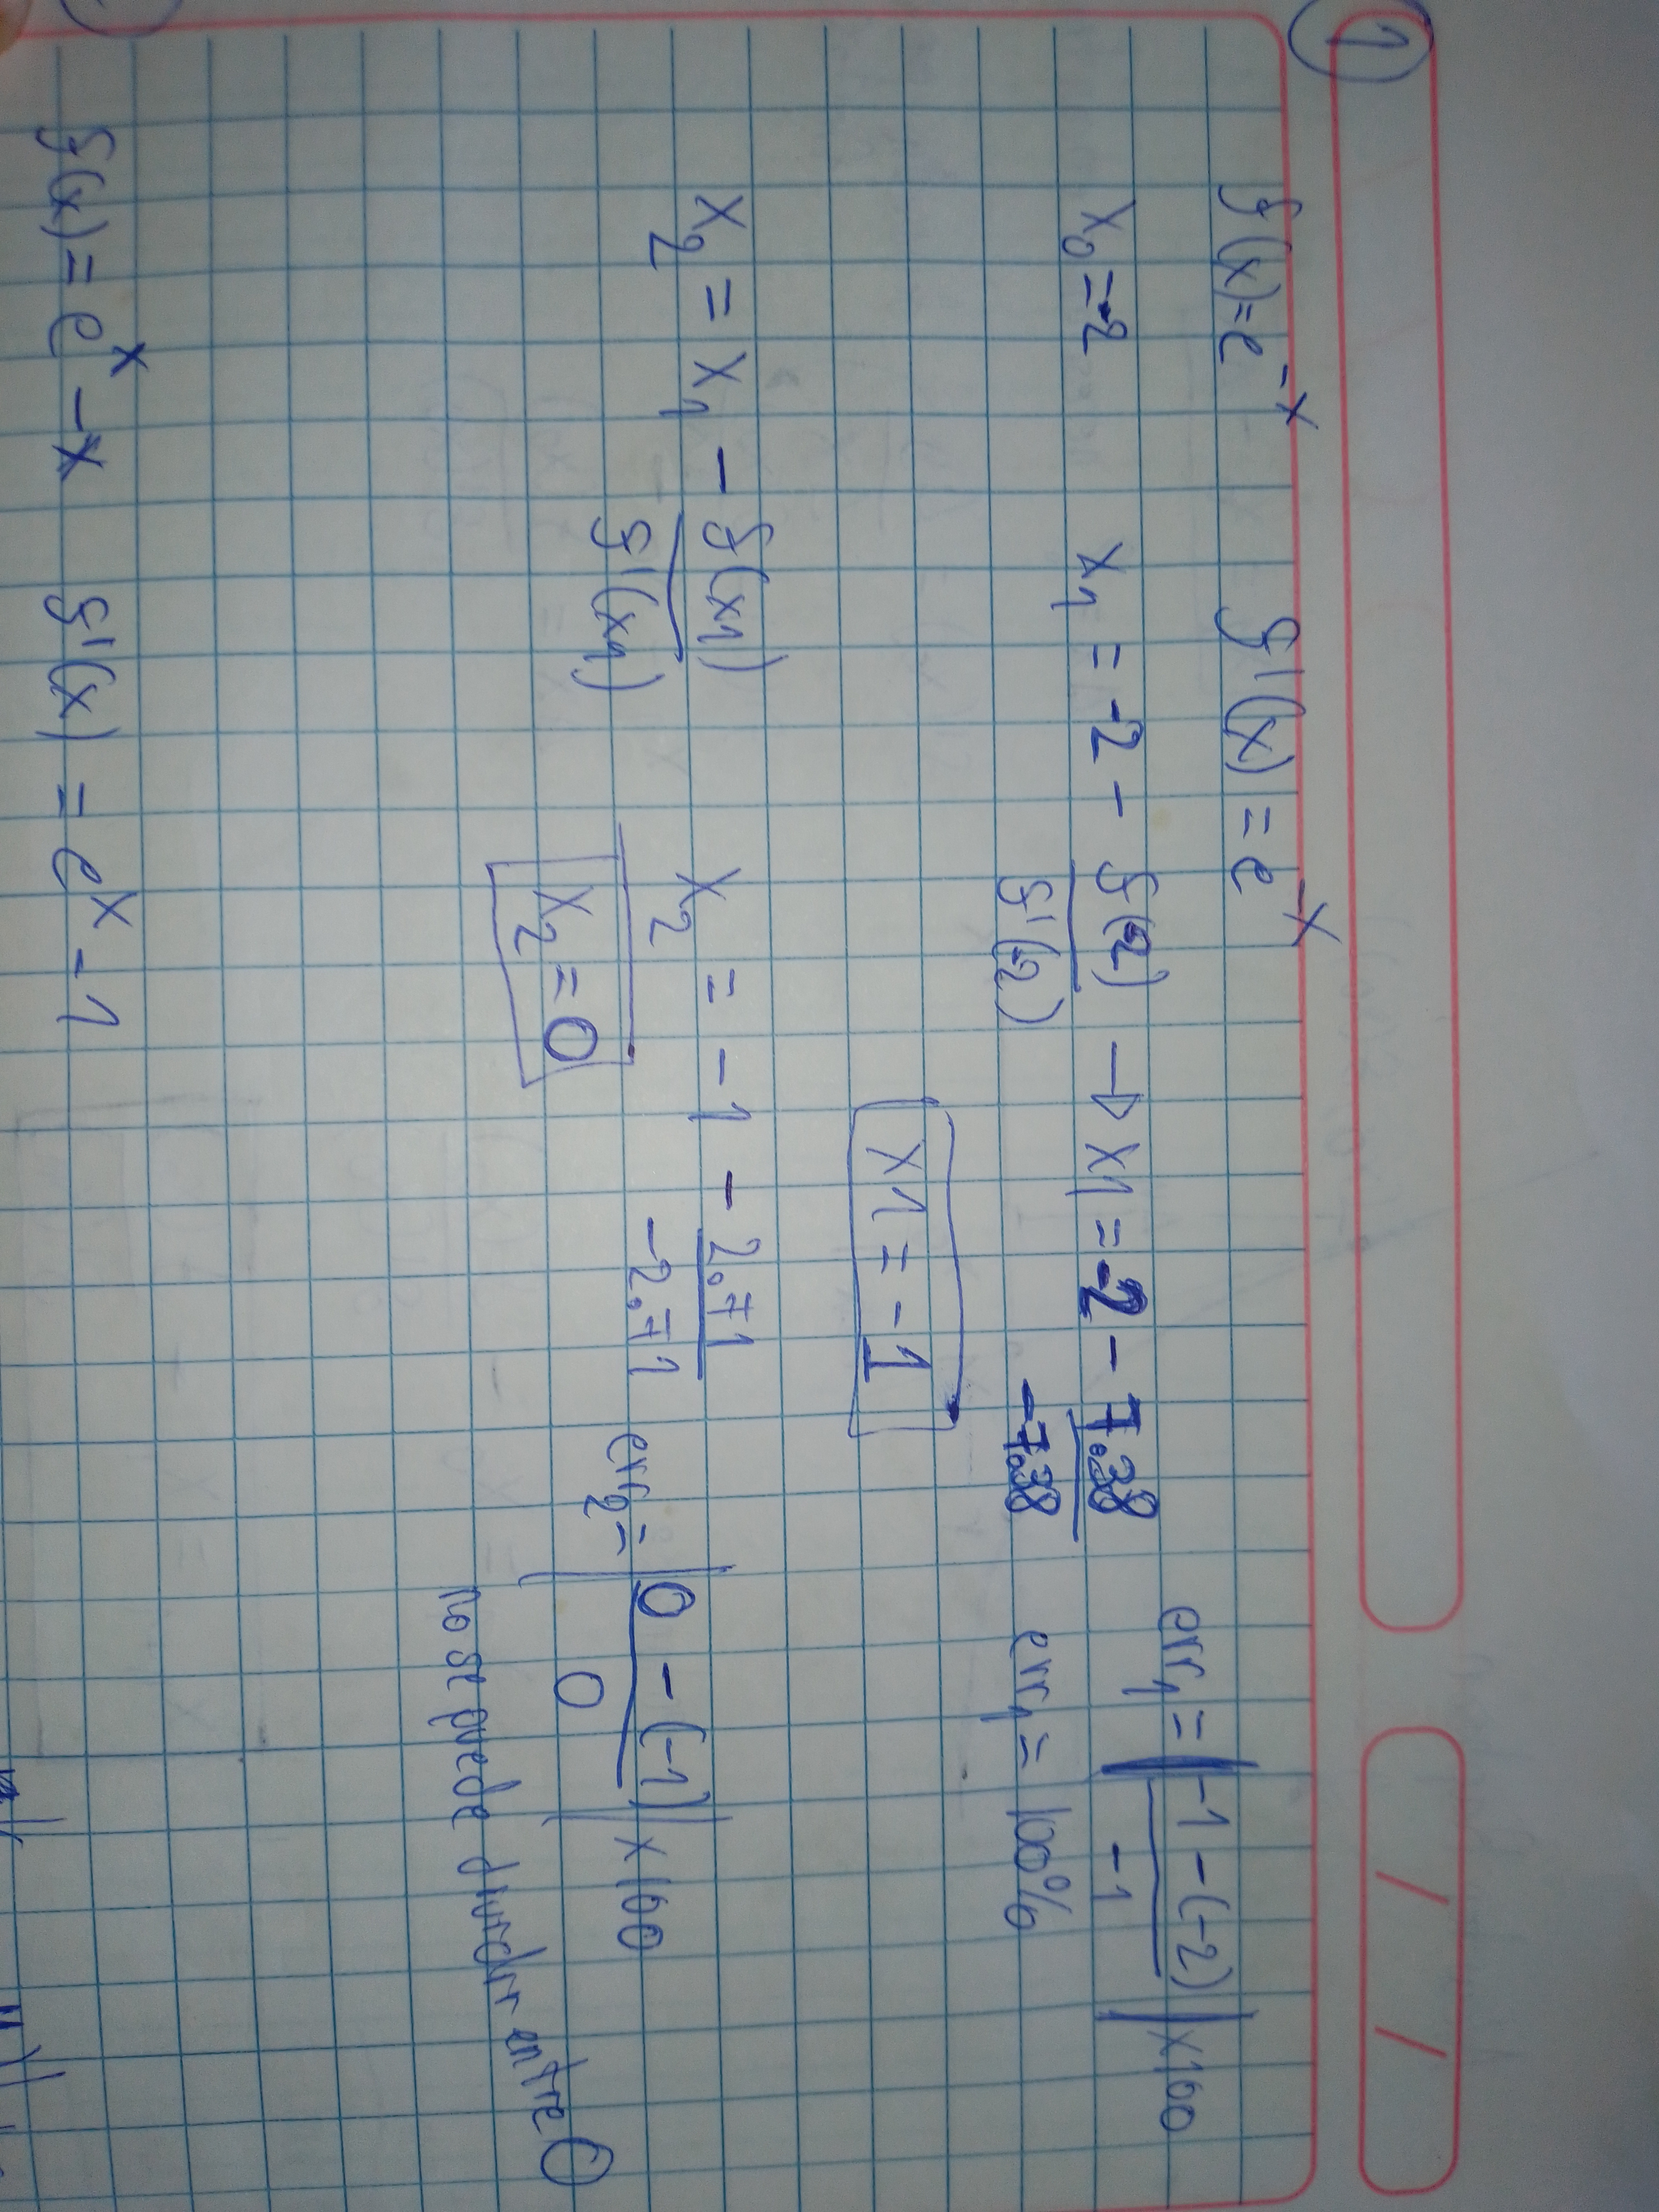 1
f(x)=e^-x f'(x) = e^-x
x₀=-2 x₁ = -2 - f(-2)/f'(-2) → x1 = -2 - 7.38/-7.38 err₁ = |-1-(-2)/-1| x100
err₁ = 100%
x1 = -1
x₂ = x₁ - f(x₁)/f'(x₁) x₂ = -1 - 2.71/-2.71 err₂ = |0-(-1)/0| x100
x₂ = 0
no se puede dividir entre 0
f(x) = e^x - x f'(x) = e^x - 1